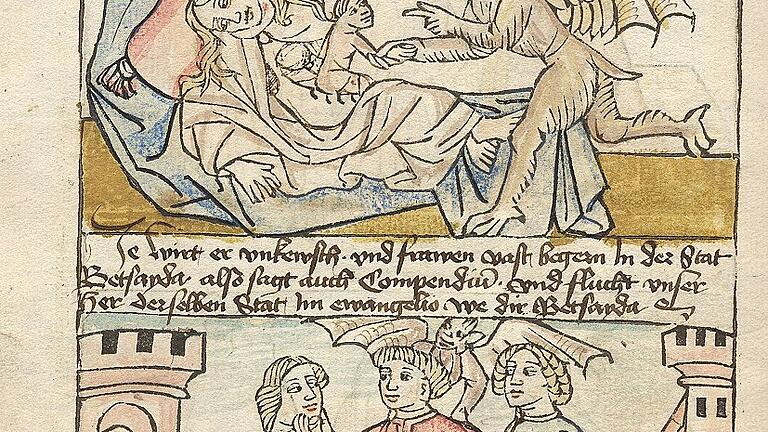 Hie wirt er vnkewsch· vnd frawen vast begern In der Stat
Betsayda· also sagt auch Compendiu͂· vnd flucht vnser
Her derselben Stat Im ewangelio we dir Betsayda